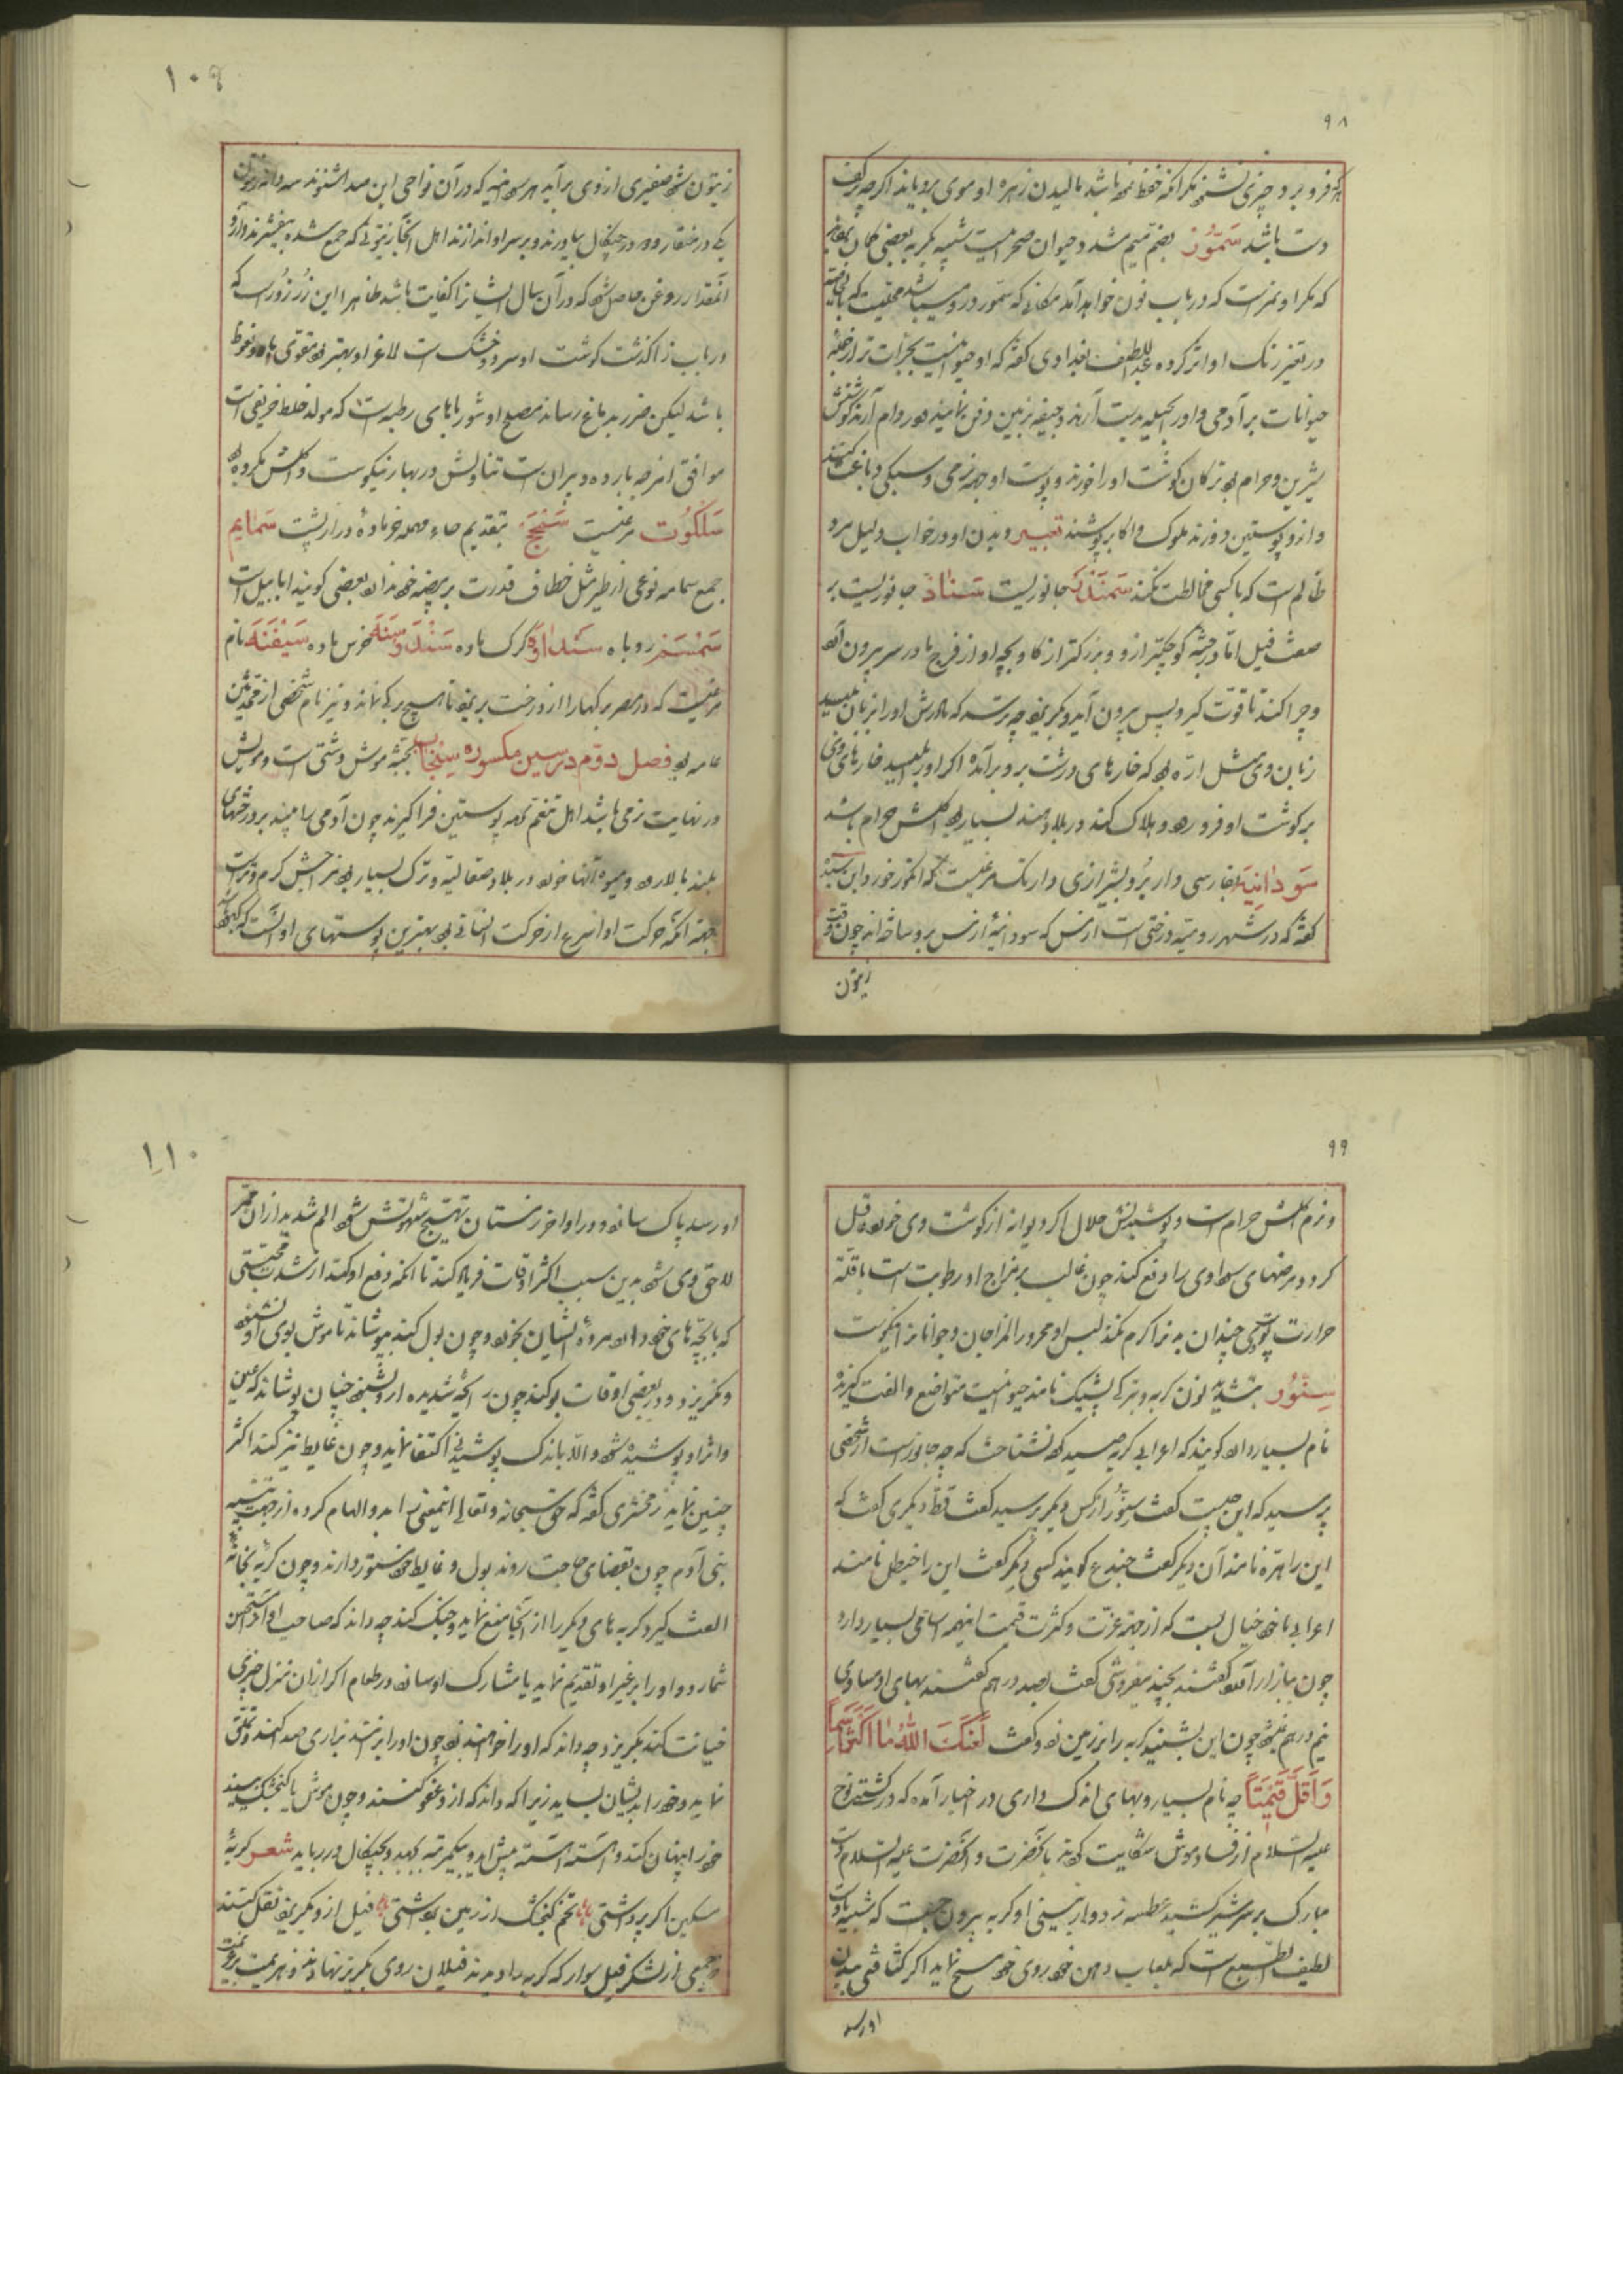 ۹۸
دست باشد سمّور بضم میم مشدد حیوان صحرائیست شبیه بگربه بعضی گمان
که مگر او نمرست که در باب نون خواهد آمد مکانی که سمّور درو میباشد
در تغیر رنگ او اثر کرده عبد اللطیف بغدادی گفته که او حیوانیست بجرأت تر از
حیوانات بر آدمی و اورا بحیله بدست آرند و جیفه بزمین دفن نمایند و دام آرند گوشتش
شیرین و حرام بود ترکان گوشت اورا خورند و پوست او جهته نرمی و سبکی
و ازو پوستین دوزند ملوک و اکابر پوشند تعبیر دیدن او در خواب دلیل مرد
ظالم است که با کسی مخالطت نکند سمندر جانوریست سناد جانوریست بر
صفت فیل امّا در جثه کوچکتر ازو و بزرکتر از کاو بچه او از فرج مادر سر بیرون آورد
و چرا کند تا قوت گیرد پس بیرون آید و بگریزد چه ترسد که مادرش اورا بزبان بلیسد
زبان وی مثل ارّه بود که خارهای درشت برو برآمده اگر اورا بلیسد خارهای وی
بر گوشت او فرو رود و هلاک کند در بلاد هند بسیار بود اکلش حرام باشد
سودانیه بفارسی دار بُر و بشیرازی دارنک مرغیست که انگور خورد ابن
گفته که در شهر رومیّه درختی است از مس که سودانیهٔ از مس بر شاخ او چون وقت
زیتون
۱۰۹
زیتون شود صفیری از وی برآید هر سودانیه که در آن نواحی این صدا شنوند سه دانه زیتون
یکی در منقار و دو در چنگال بیاورند و بر سر او اندازند اهل آنجا زیتونی که جمع شده بیفشرند و ازو
آنمقدار روغن حاصل شود که در آن سال ایشانرا کفایت باشد ظاهرا این زرزورست که
در باب زا گذشت گوشت او سرد و خشک است لاغر او بهتر بود مقوی باه و نعوظ
باشد لیکن ضرر بدماغ رساند مصلح او شورباهای رطبه است که مولد خلط حریفی است
موافق امزجه بارده و پیران است تناولش در بهار نیکوست و اکلش مکروه بود
سلکوت مرغیست سنحج بتقدیم حاء مهمله خر مادهٔ دراز پشت سمایم
جمع سمامه نوعی از طیر مثل خطاف قدرت بر بیضه خود ندارد بعضی گویند ابابیل است
سمسم روباه سنداوه گرگ ماده سندوسنه خرس ماده سیفنه نام
مرغیست که در مصر برگهارا از درخت بریزد تا هیچ برگی نماند و نیز نام شخصی از محدثین
عامه بود فصل دوّم در سین مکسوره سنجاب بجثه موش دشتی است و مویش
در نهایت نرمی باشد اهل تنعّم ازو پوستین فراگیرند چون آدمی را بیند بر درختهای
بلند بالا رود و میوه آنها خورد در بلاد صقالبه و ترک بسیار بود مزاجش گرم و ترست
جهته آنکه حرکت او اسرع از حرکت انسانی بود بهترین پوستهای او آنست که کبود
۹۹
و نرم اکلش حرام است و پوشیدنش حلال اگر دیوانه از گوشت وی خورد عاقل
گردد مرضهای سوداوی را دفع کند چون غالب بر مزاج او رطوبت است با قلّة
حرارت پوستین وی چندان بدنرا گرم نکند لبس او محرور المزاجان و جوانانرا نیکوست
سنّور بتشدید نون گربه و بترکی پشیک نامند حیوانیست متواضع و الفت گیرنده
نام بسیار دارد گویند که اعرابی گربه صید کرد نشناخت که چه جانورست از شخصی
پرسید که این چیست گفت سنّور از کس دیگر پرسید گفت قط دیگری گفت که
این را هرّه نامند آن دیگر گفت خیدع گویند کسی دیگر گفت این را خیطل نامند
اعرابی با خود خیال بست که از جهته عزّت و کثرت قیمت اینهمه اسامی بسیار دارد
چون ببازار آمد گفتند بچند میفروشی گفت بصد درهم گفتند بهای او مساوی
نیم درهم نمیشود چون این بشنید گربه را بر زمین زد و گفت لَعَنَکَ اللّٰهُ مَا اَکثَرَ اَسْمَاءً
وَاَقَلَّ قِیمَتاً چه نام بسیار و بهای اندک داری در اخبار آمده که در کشتی نوح
علیه السّلام از فساد موش شکایت کردند بآنحضرت و آنحضرت علیه السّلام دست
مبارک بر سر شیر کشید عطسه زد و از بینی او گربه بیرون جست که شبیه باوست
لطیف الطبع است که بلعاب دهن خود روی خود مسح نماید اگر کثافتی ببدن
او رسد
۱۱۰
او رسد پاک سازد و در اواخر زمستان تهیّج شهوتش شود الم شدید از آن
لاحق وی شود بدین سبب اکثر اوقات فریاد کند تا آنکه دفع او کند از شدت محبتی
که با بچّه‌های خود دارد مردهٔ ایشان بخورد و چون بول کند بپوشاند تا موش بوی او نشنود
و نگریزد و در بعضی اوقات بو کند چون رایحه شدیده ازو بشنود چنان پوشاند که عین
و اثر او پوشیده شود و الّا باندک پوشیدنی اکتفا نماید و چون غایط نیز کند اکثر
چنین نماید زمخشری گفته که حق سبحانه و تعالی اینمعنی را بدو الهام کرده از جهت تنبیه
بنی آدم چون بقضای حاجت روند بول و غایط خود مستور دارند و چون گربه بخانهٔ
الفت گیرد گربه‌های دیگر را از آنجا منع نماید و جنگ کند چه داند که صاحب او اورا مستحسن
شمارد و اورا بر غیر او تقدیم نماید یا مشارک او سازد در طعام اگر از آن منزل چیزی
خیانت کند بگریزد چه داند که اورا خواهند زد چون اورا بزنند بزاری صدا کند و تملّق
نماید و خودرا بدیشان بساید زیرا که داند که ازو عفو کنند و چون موش یا گنجشک بیند
خودرا پنهان کند و آهسته آهسته پیش آید و بیکمرتبه بجهد و بچنگال در رباید شعر گربهٔ
مسکین اگر پر داشتی تخم گنجشک از زمین برداشتی فیل ازو بگریزد نقل کنند
جمعی از لشکر فیل سوار که گربه را دیدند فیلان روی بگریز نهادند و هزیمت